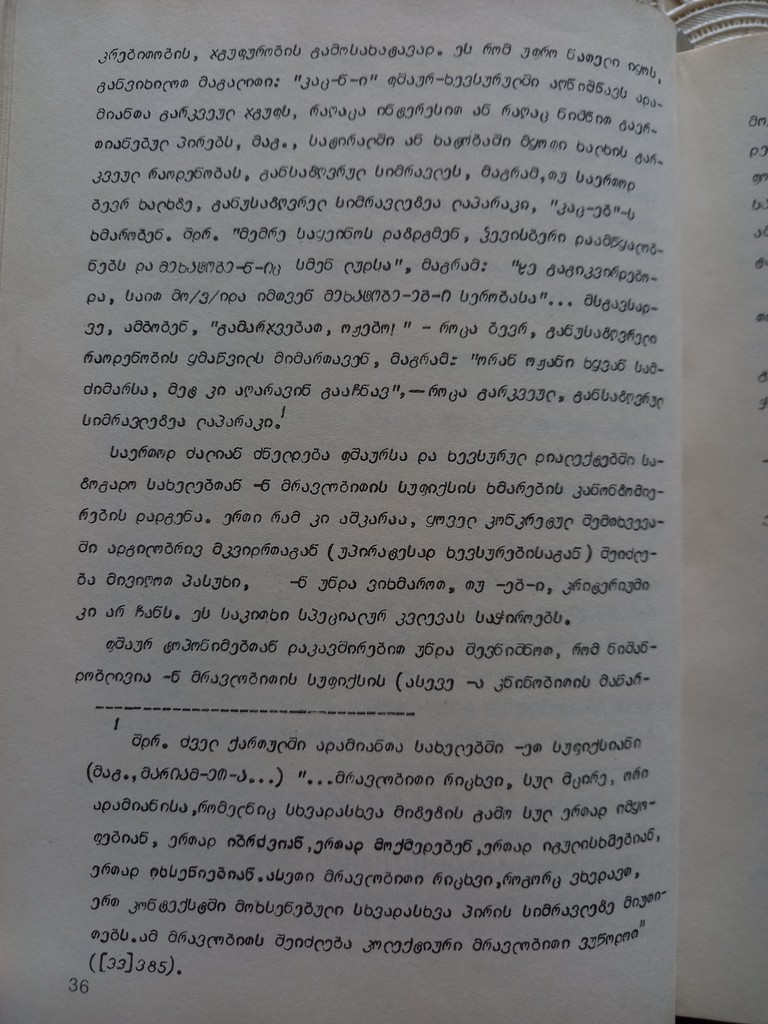 კრებითობის, ჯგუფურობის გამოსახატავად. ეს რომ უფრო ნათელი იყოს,
განვიხილოთ მაგალითი: "კაც-ნ-ი" ფშაურ-ხევსურულში აღნიშნავს ადა-
მიანთა გარკვეულ ჯგუფს, რაღაცა ინტერესით ან რაღაც ნიშნით გაერ-
თიანებულ პირებს, მაგ., სატირალში ან ხატობაში მყოფი ხალხის გარ-
კვეულ რაოდენობას, განსაზღვრულ სიმრავლეს, მაგრამ, თუ საერთოდ
ბევრ ხალხზე, განუსაზღვრელ სიმრავლეზეა ლაპარაკი, "კაც-ებ"-ს
ხმარობენ. შდრ. "მემრე საყეინოს დაზდგმენ, ჴევისბერი დაამწყალობ-
ნებს და მეხატობე-ნ-იც სმენ ლუდსა", მაგრამ: "ძე გაგიკვირდებო-
და, საით მო/ვ/იდა იმთვენ მეხატობე-ებ-ი სერობასა"... მსგავსად-
ვე, ამბობენ, "გამარჯვებათ, ოჟებო!" - როცა ბევრ, განუსაზღვრელი
რაოდენობის ყმაწვილს მიმართავენ, მაგრამ: "ორან ოჟანი ხყვან სამ-
ძიმარსა, მეტ კი აღარავინ გააჩნავ",—როცა გარკვეულ, განსაზღვრულ
სიმრავლეზეა ლაპარაკი.1
საერთოდ ძალიან ძნელდება ფშაურსა და ხევსურულ დიალექტებში სა-
ზოგადო სახელებთან -ნ მრავლობითის სუფიქსის ხმარების კანონზომიე-
რების დადგენა. ერთი რამ კი აშკარაა, ყოველ კონკრეტულ შემთხვევა-
ში ადგილობრივ მკვიდრთაგან (უპირატესად ხევსურებისაგან) შეიძლე-
ბა მივიღოთ პასუხი, -ნ უნდა ვიხმაროთ, თუ -ებ-ი, კრიტერიუმი
კი არ ჩანს. ეს საკითხი სპეციალურ კვლევას საჭიროებს.
ფშაურ ტოპონიმებთან დაკავშირებით უნდა შევნიშნოთ, რომ ნიშან-
დობლივია -ნ მრავლობითის სუფიქსის (ასევე -ა კნინობითის მაწარ-
1
შდრ. ძველ ქართულში ადამიანთა სახელებში -ეთ სუფიქსიანი
(მაგ., მარიამ-ეთ-ა...) "...მრავლობითი რიცხვი, სულ მცირე, ორი
ადამიანისა, რომელნიც სხვადასხვა მიზეზის გამო სულ ერთად იმყო-
ფებიან, ერთად იბრძვიან, ერთად მოქმედებენ, ერთად იგულისხმებიან,
ერთად იხსენიებიან. ასეთი მრავლობითი რიცხვი, როგორც ვხედავთ,
ერთ კონტექსტში მოხსენებული სხვადასხვა პირის სიმრავლეზე მიუთი-
თებს. ამ მრავლობითს შეიძლება კოლექტიური მრავლობითი ვუწოდოთ"
([33]385).
36